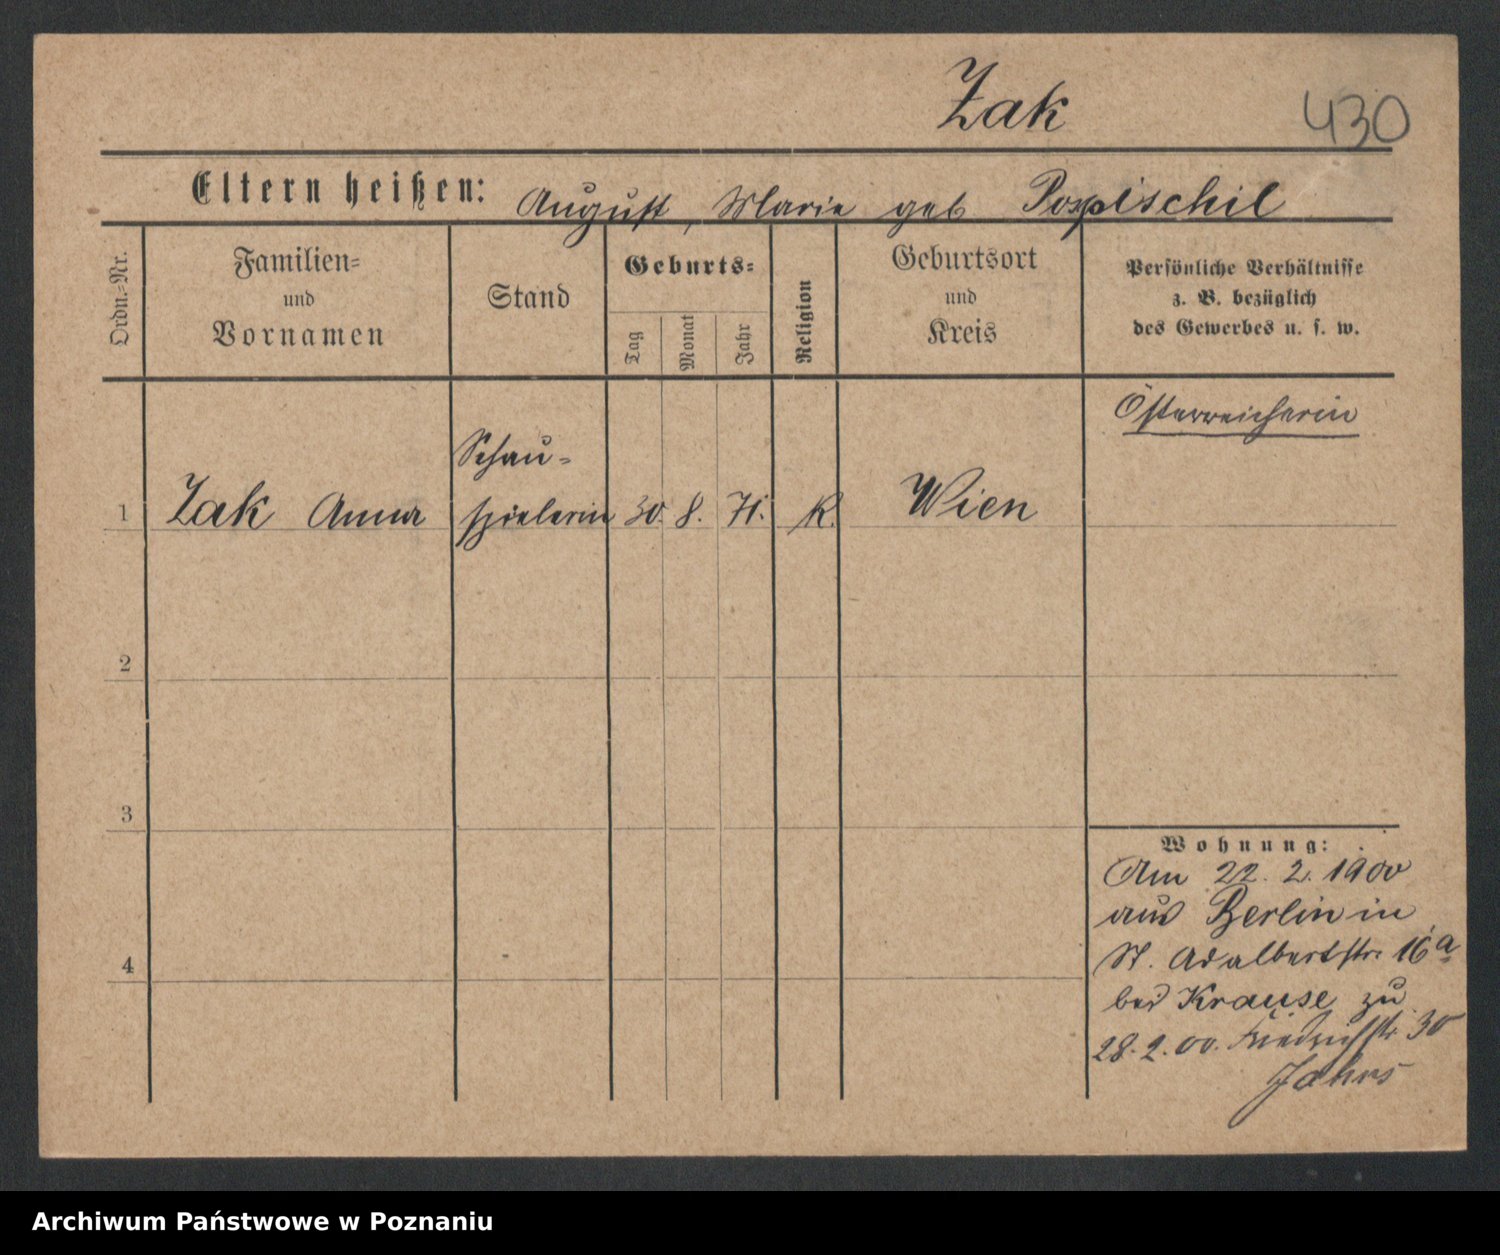 Zak
430
Eltern heißen: August, Marie geb Pospischil
Ordn.=Nr.
Familien=
und
Vornamen
Stand
Geburts=
Tag
Monat
Jahr
Religion
Geburtsort
und
Kreis
Persönliche Verhältnisse
z. B. bezüglich
des Gewerbes u. s. w.
Österreicherin
Schau-
1 Zak Anna spielerin 30. 8. 71. K. Wien
2
3
4
Wohnung:
Am 22. 2. 1900
aus Berlin in
St. Adalbertstr. 16a
bei Krause zu
28. 2. 00. Friedrichstr. 30
Jahns
Archiwum Państwowe w Poznaniu